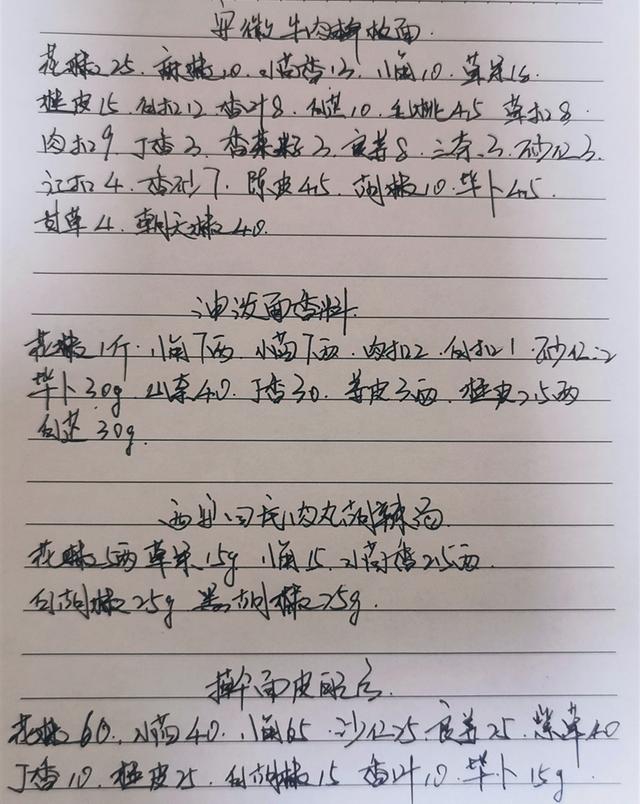 安徽牛肉板面
花椒25.麻椒10.小茴香13.八角10.草果15.
桂皮15.白扣12.香叶8.白芷10.毛桃45.草扣8.
肉扣9.丁香3.香菜籽3.良姜8.三奈3.砂仁3.
红扣4.香砂7.陈皮45.胡椒10.毕卜45.
甘草4.朝天椒40.
油泼面香料
花椒1斤.八角7两.小茴7两.肉扣2.白扣1.砂仁2
毕卜30g.山奈40.丁香30.姜皮3两.桂皮2.5两
白芷30g.
西安回民肉丸胡辣汤
花椒5两草果15g.八角15.小茴香2.5两.
白胡椒25g黑胡椒25g.
擀面皮配方.
花椒60.小茴40.八角65.沙仁25.良姜25.紫草40
丁香10.桂皮25.白胡椒15.香叶10.毕卜15g